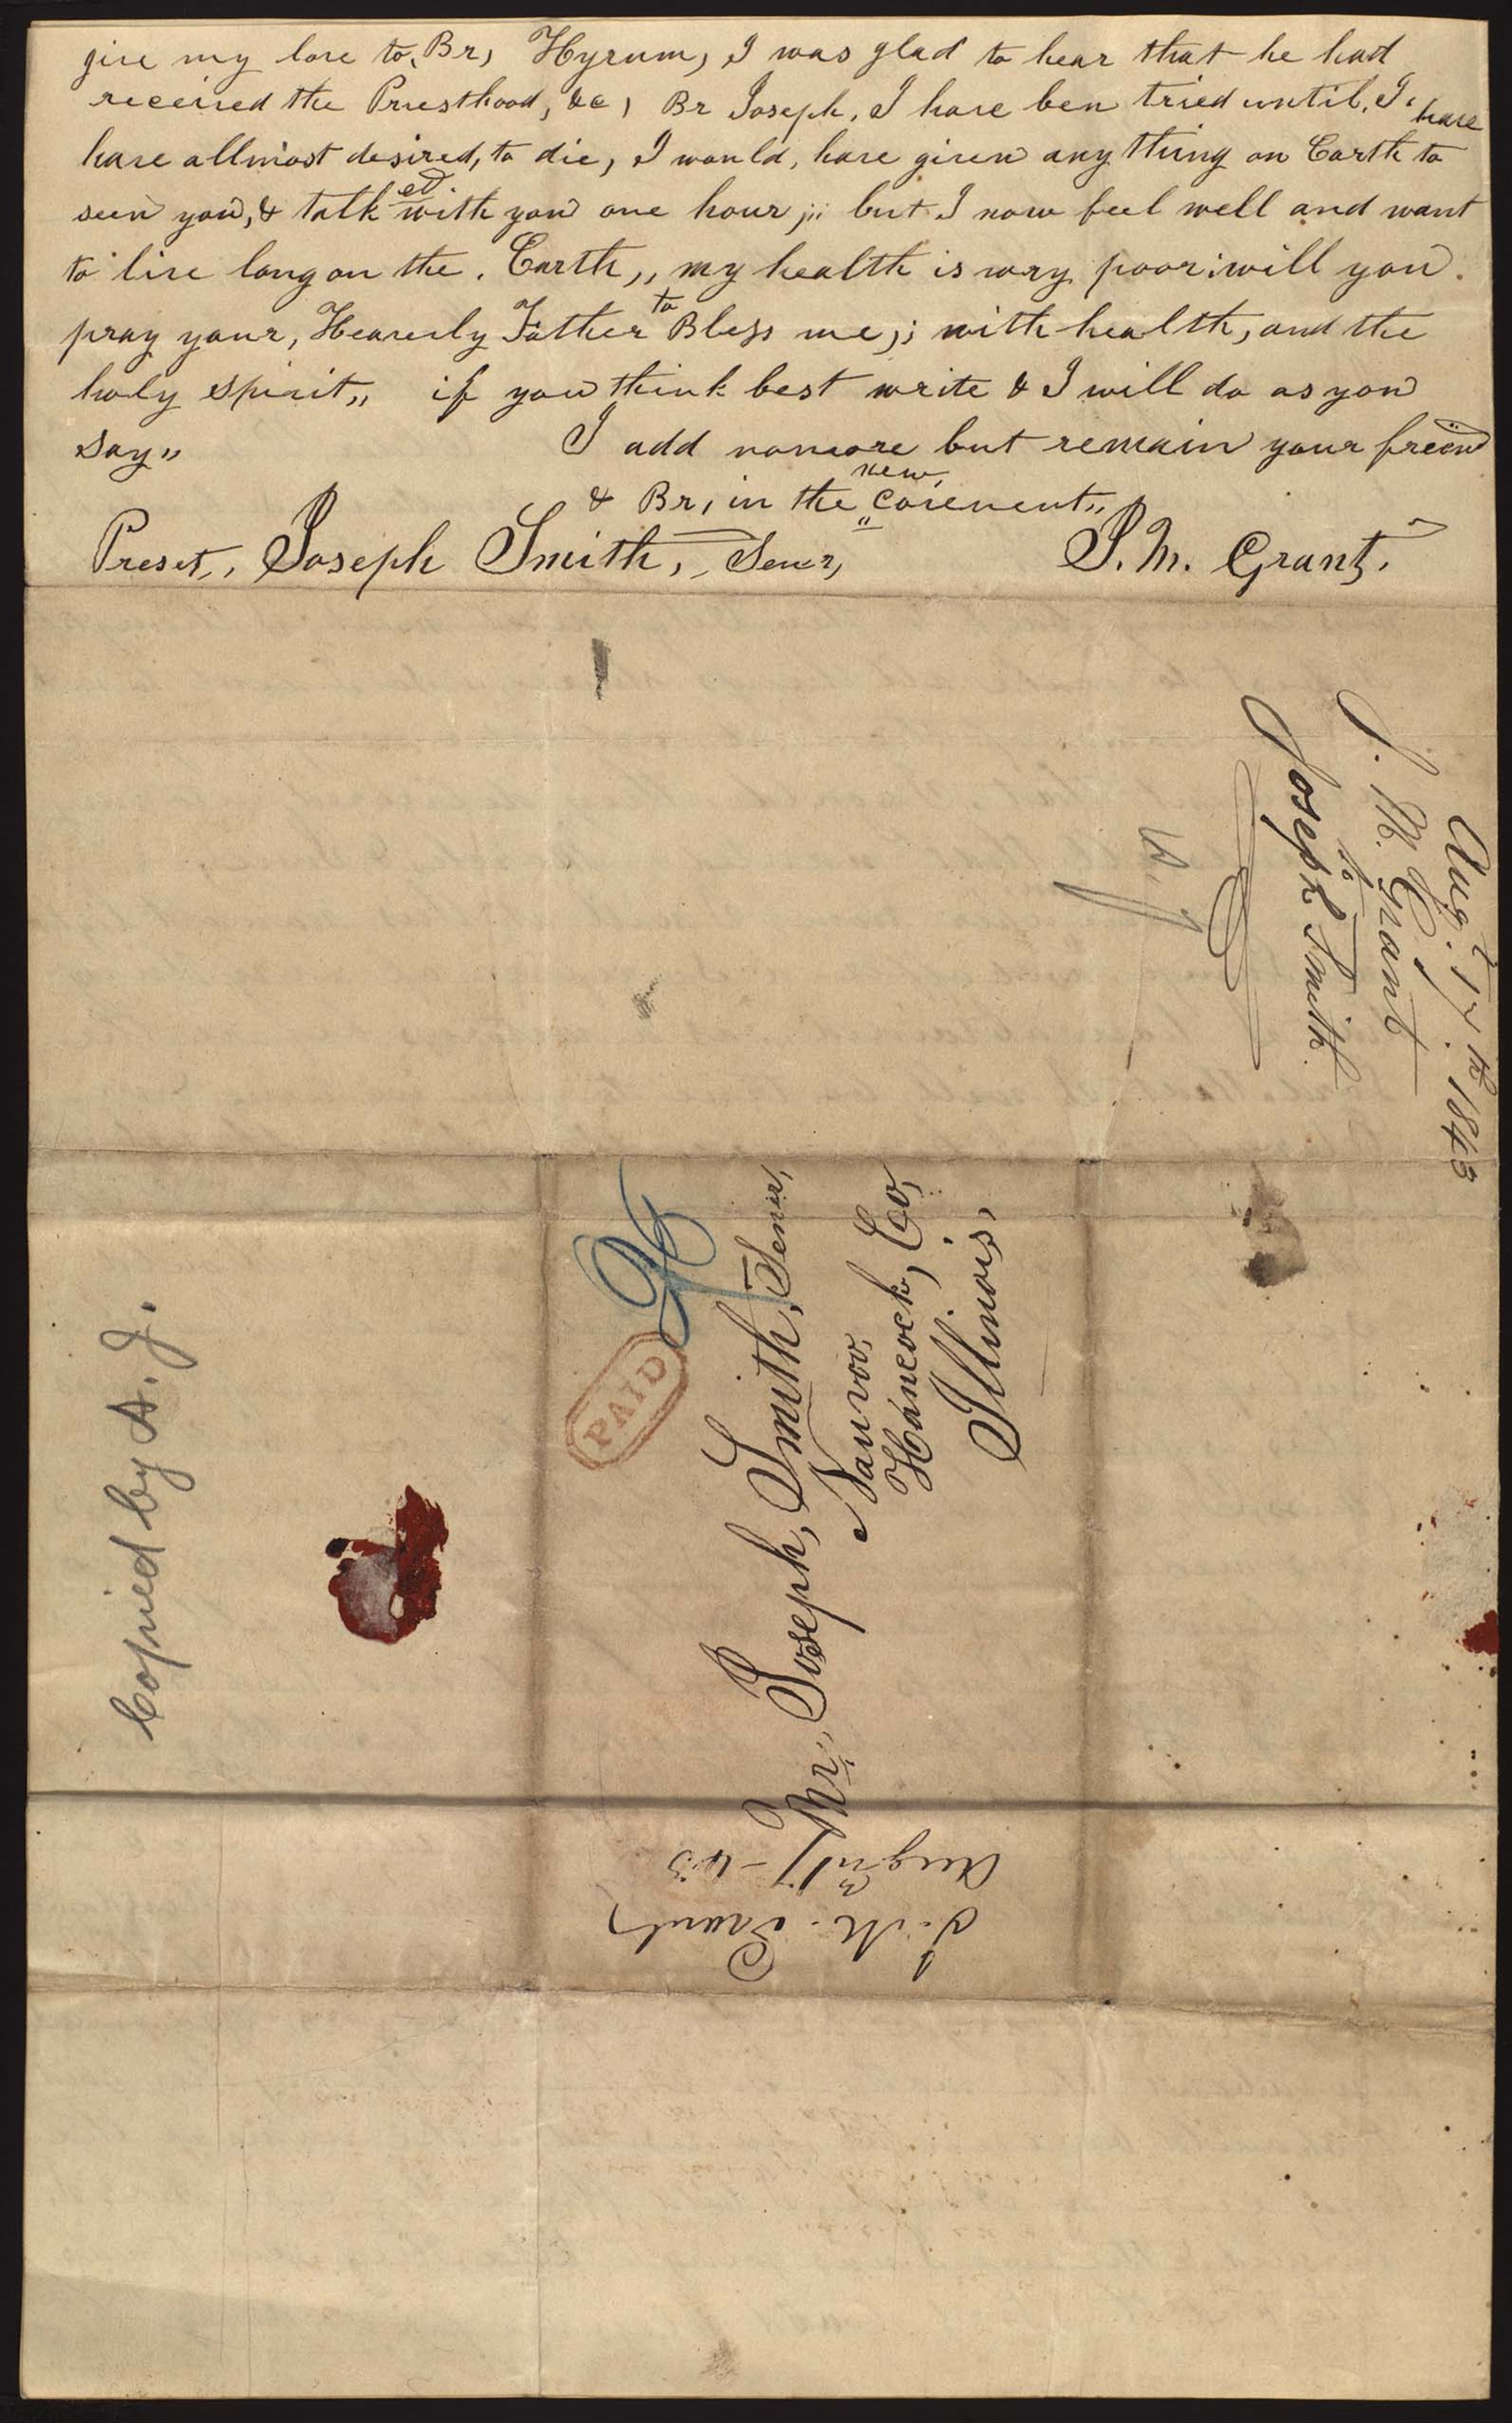 give my love to, Br, Hyrum, I was glad to hear that he had
received the Priesthood, &c, Br Joseph, I have ben tried until, I have
have allmost desired, to die, I would, have given any thing on Earth to
seen you, & talked with you one hour,;; but I now feel well and want
to live long on the. Earth,, my health is vary poor: will you.
pray your, Heavenly Father to Bless me,;; with health, and the
holy spirit,, if you think best write & I will do as you
say,,
I add nomore but remain your freind
& Br, in the new, covenent,,
Preset,, Joseph Smith, Sener,
J. M. Grant,
Aug. 17th 1843
J. M. Grant
to
Joseph Smith
A. J.
PAID
Mr,, Joseph, Smith, Sener,
Nauvoo,
Hancock, Co,
Illinois,
J. M. Grant
Augn 17 - 43
Copied by A. J.